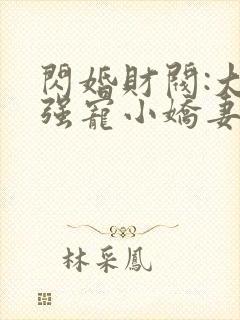 閃婚財閥:大
强寵小嬌妻
林采鳳